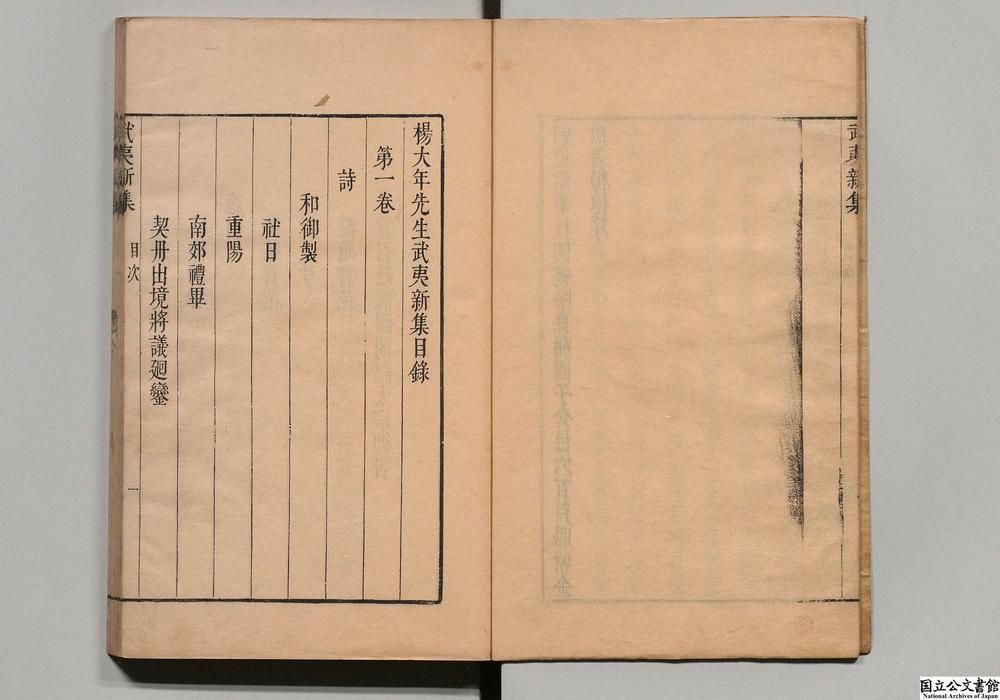 武夷新集
楊大年先生武夷新集目錄
第一卷
詩
和御製
社日
重陽
南郊禮畢
契丹出境將議廻鑾
武夷新集
目次
一
国立公文書館
National Archives of Japan